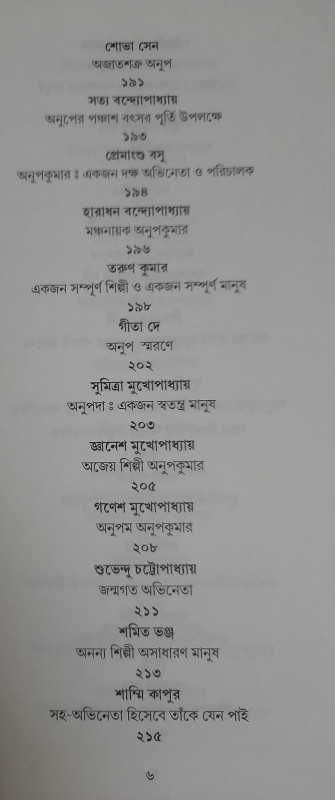 শোভা সেন
অজাতশত্রু অনুপ
১৯১
সত্য বন্দ্যোপাধ্যায়
অনুপের পঞ্চাশ বৎসর পূর্তি উপলক্ষে
১৯৩
প্রেমাংশু বসু
অনুপকুমার : একজন দক্ষ অভিনেতা ও পরিচালক
১৯৪
হারাধন বন্দ্যোপাধ্যায়
মঞ্চনায়ক অনুপকুমার
১৯৬
তরুণ কুমার
একজন সম্পূর্ণ শিল্পী ও একজন সম্পূর্ণ মানুষ
১৯৮
গীতা দে
অনুপ স্মরণে
২০২
সুমিত্রা মুখোপাধ্যায়
অনুপদা : একজন স্বতন্ত্র মানুষ
২০৩
জ্ঞানেশ মুখোপাধ্যায়
অজেয় শিল্পী অনুপকুমার
২০৫
গণেশ মুখোপাধ্যায়
অনুপম অনুপকুমার
২০৮
শুভেন্দু চট্টোপাধ্যায়
জন্মগত অভিনেতা
২১১
শমিত ভঞ্জ
অনন্য শিল্পী অসাধারণ মানুষ
২১৩
শাম্মি কাপুর
সহ-অভিনেতা হিসেবে তাঁকে যেন পাই
২১৫
৬